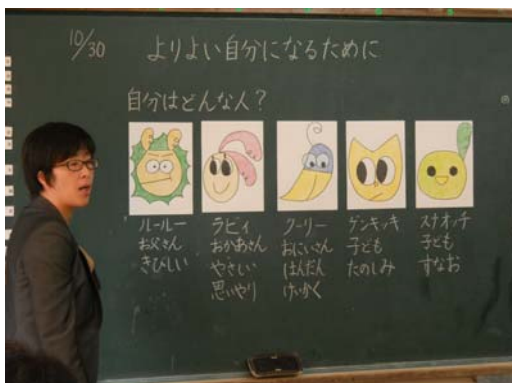 10/30 よりよい自分になるために
自分はどんな人?
ルールー
お父さん
きびしい
ラビィ
おかあさん
やさしい
思いやり
クーリー
おにいさん
はんだん
けいかく
ゲンキッキ
子ども
たのしみ
スナオッチ
子ども
すなお